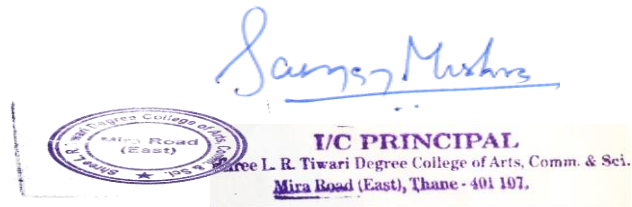 Sanjay Mishra
Shree L. R. Tiwari Degree College of Arts, Comm. & Sci.
Mira Road
(East)
I/C PRINCIPAL
Shree L. R. Tiwari Degree College of Arts, Comm. & Sci.
Mira Road (East), Thane - 401 107.